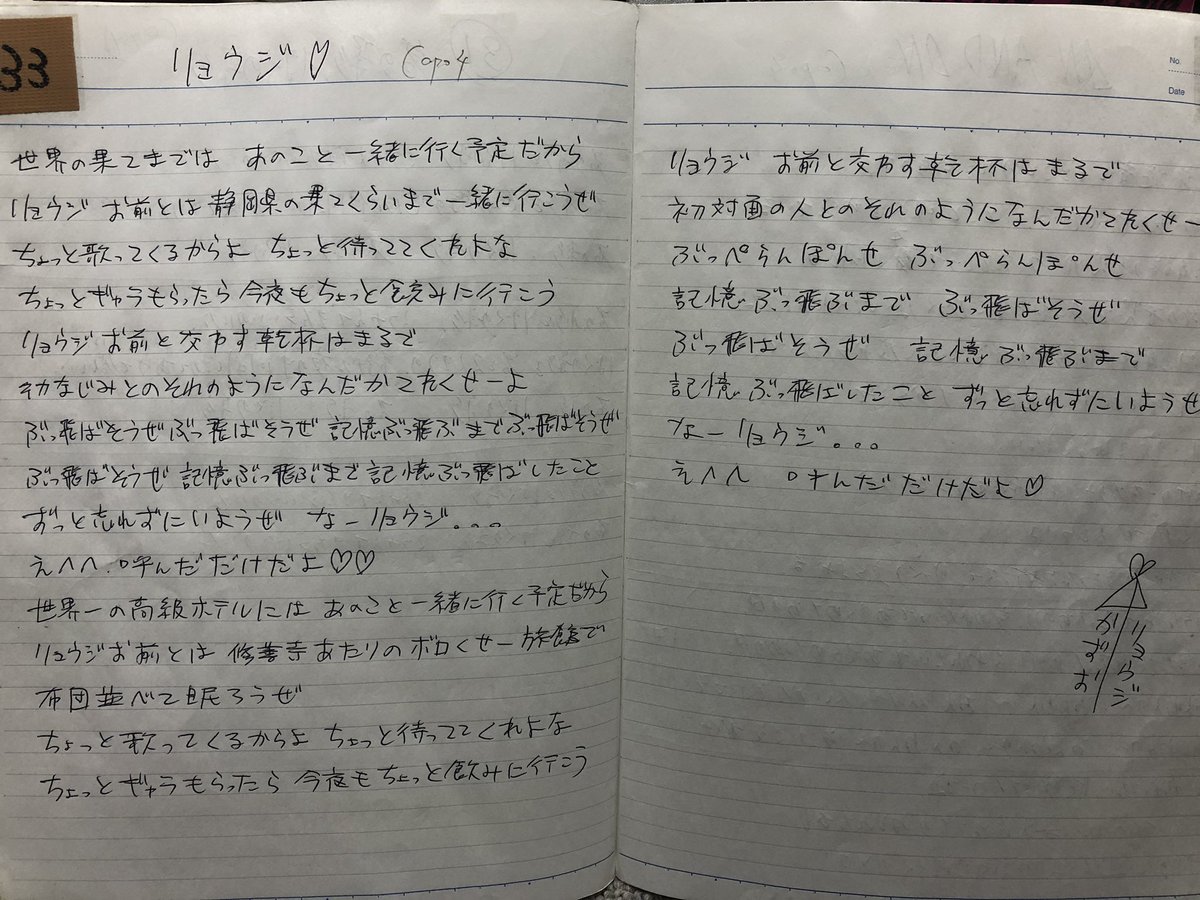 33
リョウジ♡ Capo4
世界の果てまでは あのこと一緒に行く予定だから
リョウジ お前とは静岡県の果てくらいまで一緒に行こうぜ
ちょっと歌ってくるからよ ちょっと待っててくれよな
ちょっとギャラもらったら今夜もちょっと飲みに行こう
リョウジお前と交わす乾杯はまるで
幼なじみとのそれのようになんだかてれくせーよ
ぶっ飛ばそうぜぶっ飛ばそうぜ 記憶ぶっ飛ぶまでぶっ飛ばそうぜ
ぶっ飛ばそうぜ 記憶ぶっ飛ぶまで記憶ぶっ飛ばしたこと
ずっと忘れずにいようぜ なーリョウジ...
えへへ.呼んだだけだよ♡♡
世界一の高級ホテルには あのこと一緒に行く予定だから
リョウジお前とは 修善寺あたりのボロくせー旅館で
布団並べて眠ろうぜ
ちょっと歌ってくるからよ ちょっと待っててくれよな
ちょっとギャラもらったら 今夜もちょっと飲みに行こう
No.
Date
リョウジ お前と交わす乾杯はまるで
初対面の人とのそれのようになんだかてれくせー
ぶっぺらんぽんせ ぶっぺらんぽんせ
記憶ぶっ飛ぶまで ぶっ飛ばそうぜ
ぶっ飛ばそうぜ 記憶ぶっ飛ぶまで
記憶ぶっ飛ばしたこと ずっと忘れずにいようぜ
なーリョウジ...
えへへ 呼んだだけだよ♡
リョウジ
かずお